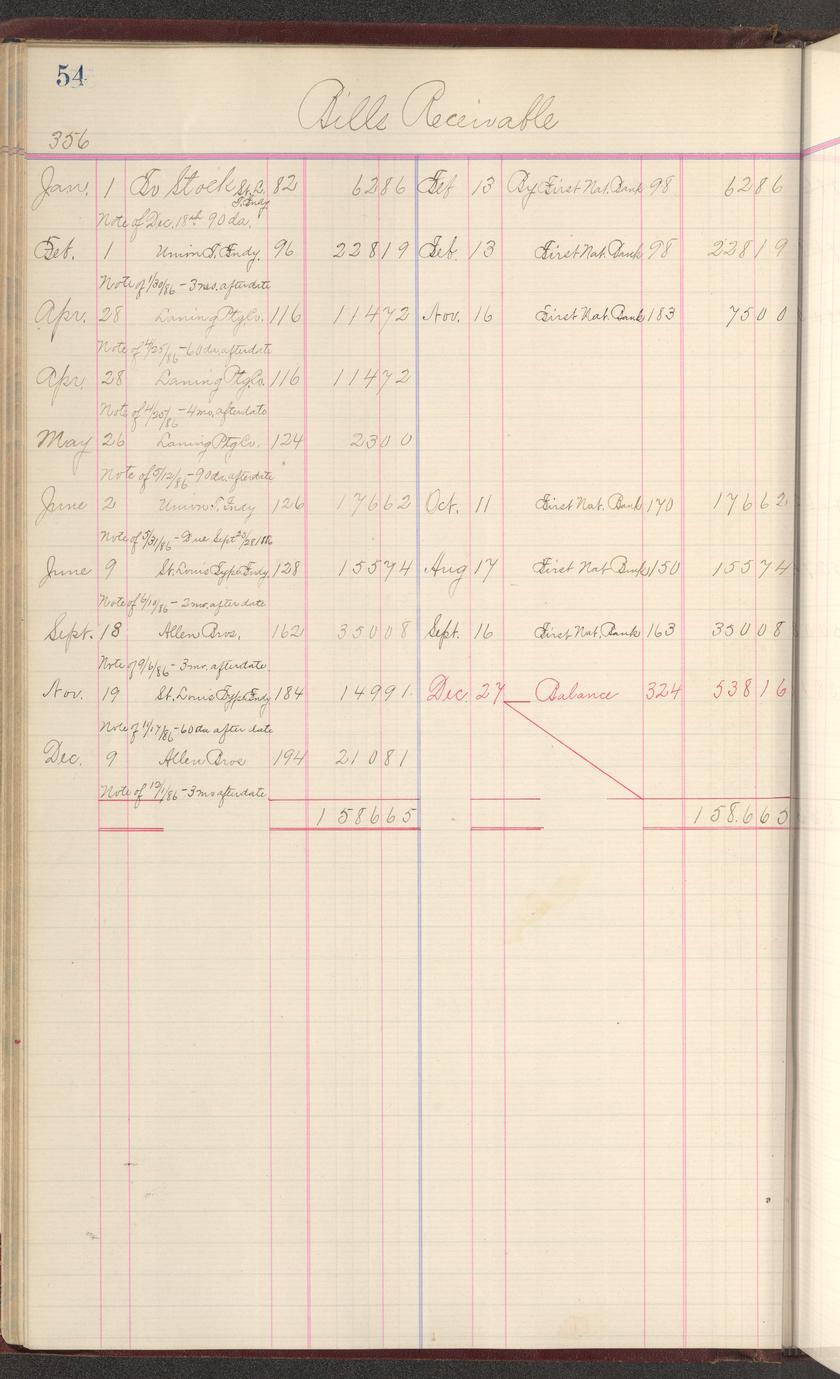 54
Bills Receivable
356
Jan. 1 To Stock St. L. T. Fndy 82 6286 Feb 13 By First Nat. Bank 98 6286
Note of Dec. 18th 90 da.
Feb. 1 Union T. Fndy. 96 22819 Feb. 13 First Nat. Bank 98 22819
Note of 1/30/86 - 3 mos. after date
Apr. 28 Laning Ptg Co. 116 11472 Nov. 16 First Nat. Bank 183 7500
Note of 4/25/86 - 60 da. after date
Apr. 28 Laning Ptg Co. 116 11472
Note of 4/25/86 - 4 mo. after date
May 26 Laning Ptg Co. 124 2300
Note of 5/12/86 - 90 da. after date
June 2 Union T. Fndy 126 17662 Oct. 11 First Nat. Bank 170 17662
Note of 5/31/86 - Due Sept
June 9 St. Louis Type Fndy 128 15574 Aug 17 First Nat Bank 150 15574
Note of 6/10/86 - 2 mo. after date
Sept. 18 Allen Bros. 162 35008 Sept. 16 First Nat. Bank 163 35008
Note of 9/6/86 - 3 mo. after date
Nov. 19 St. Louis Type Fndy 184 14991 Dec. 27 Balance 324 53816
Note of 11/17/86 - 60 da after date
Dec. 9 Allen Bros 194 21081
Note of 12/1/86 - 3 mo after date
158665 158.665